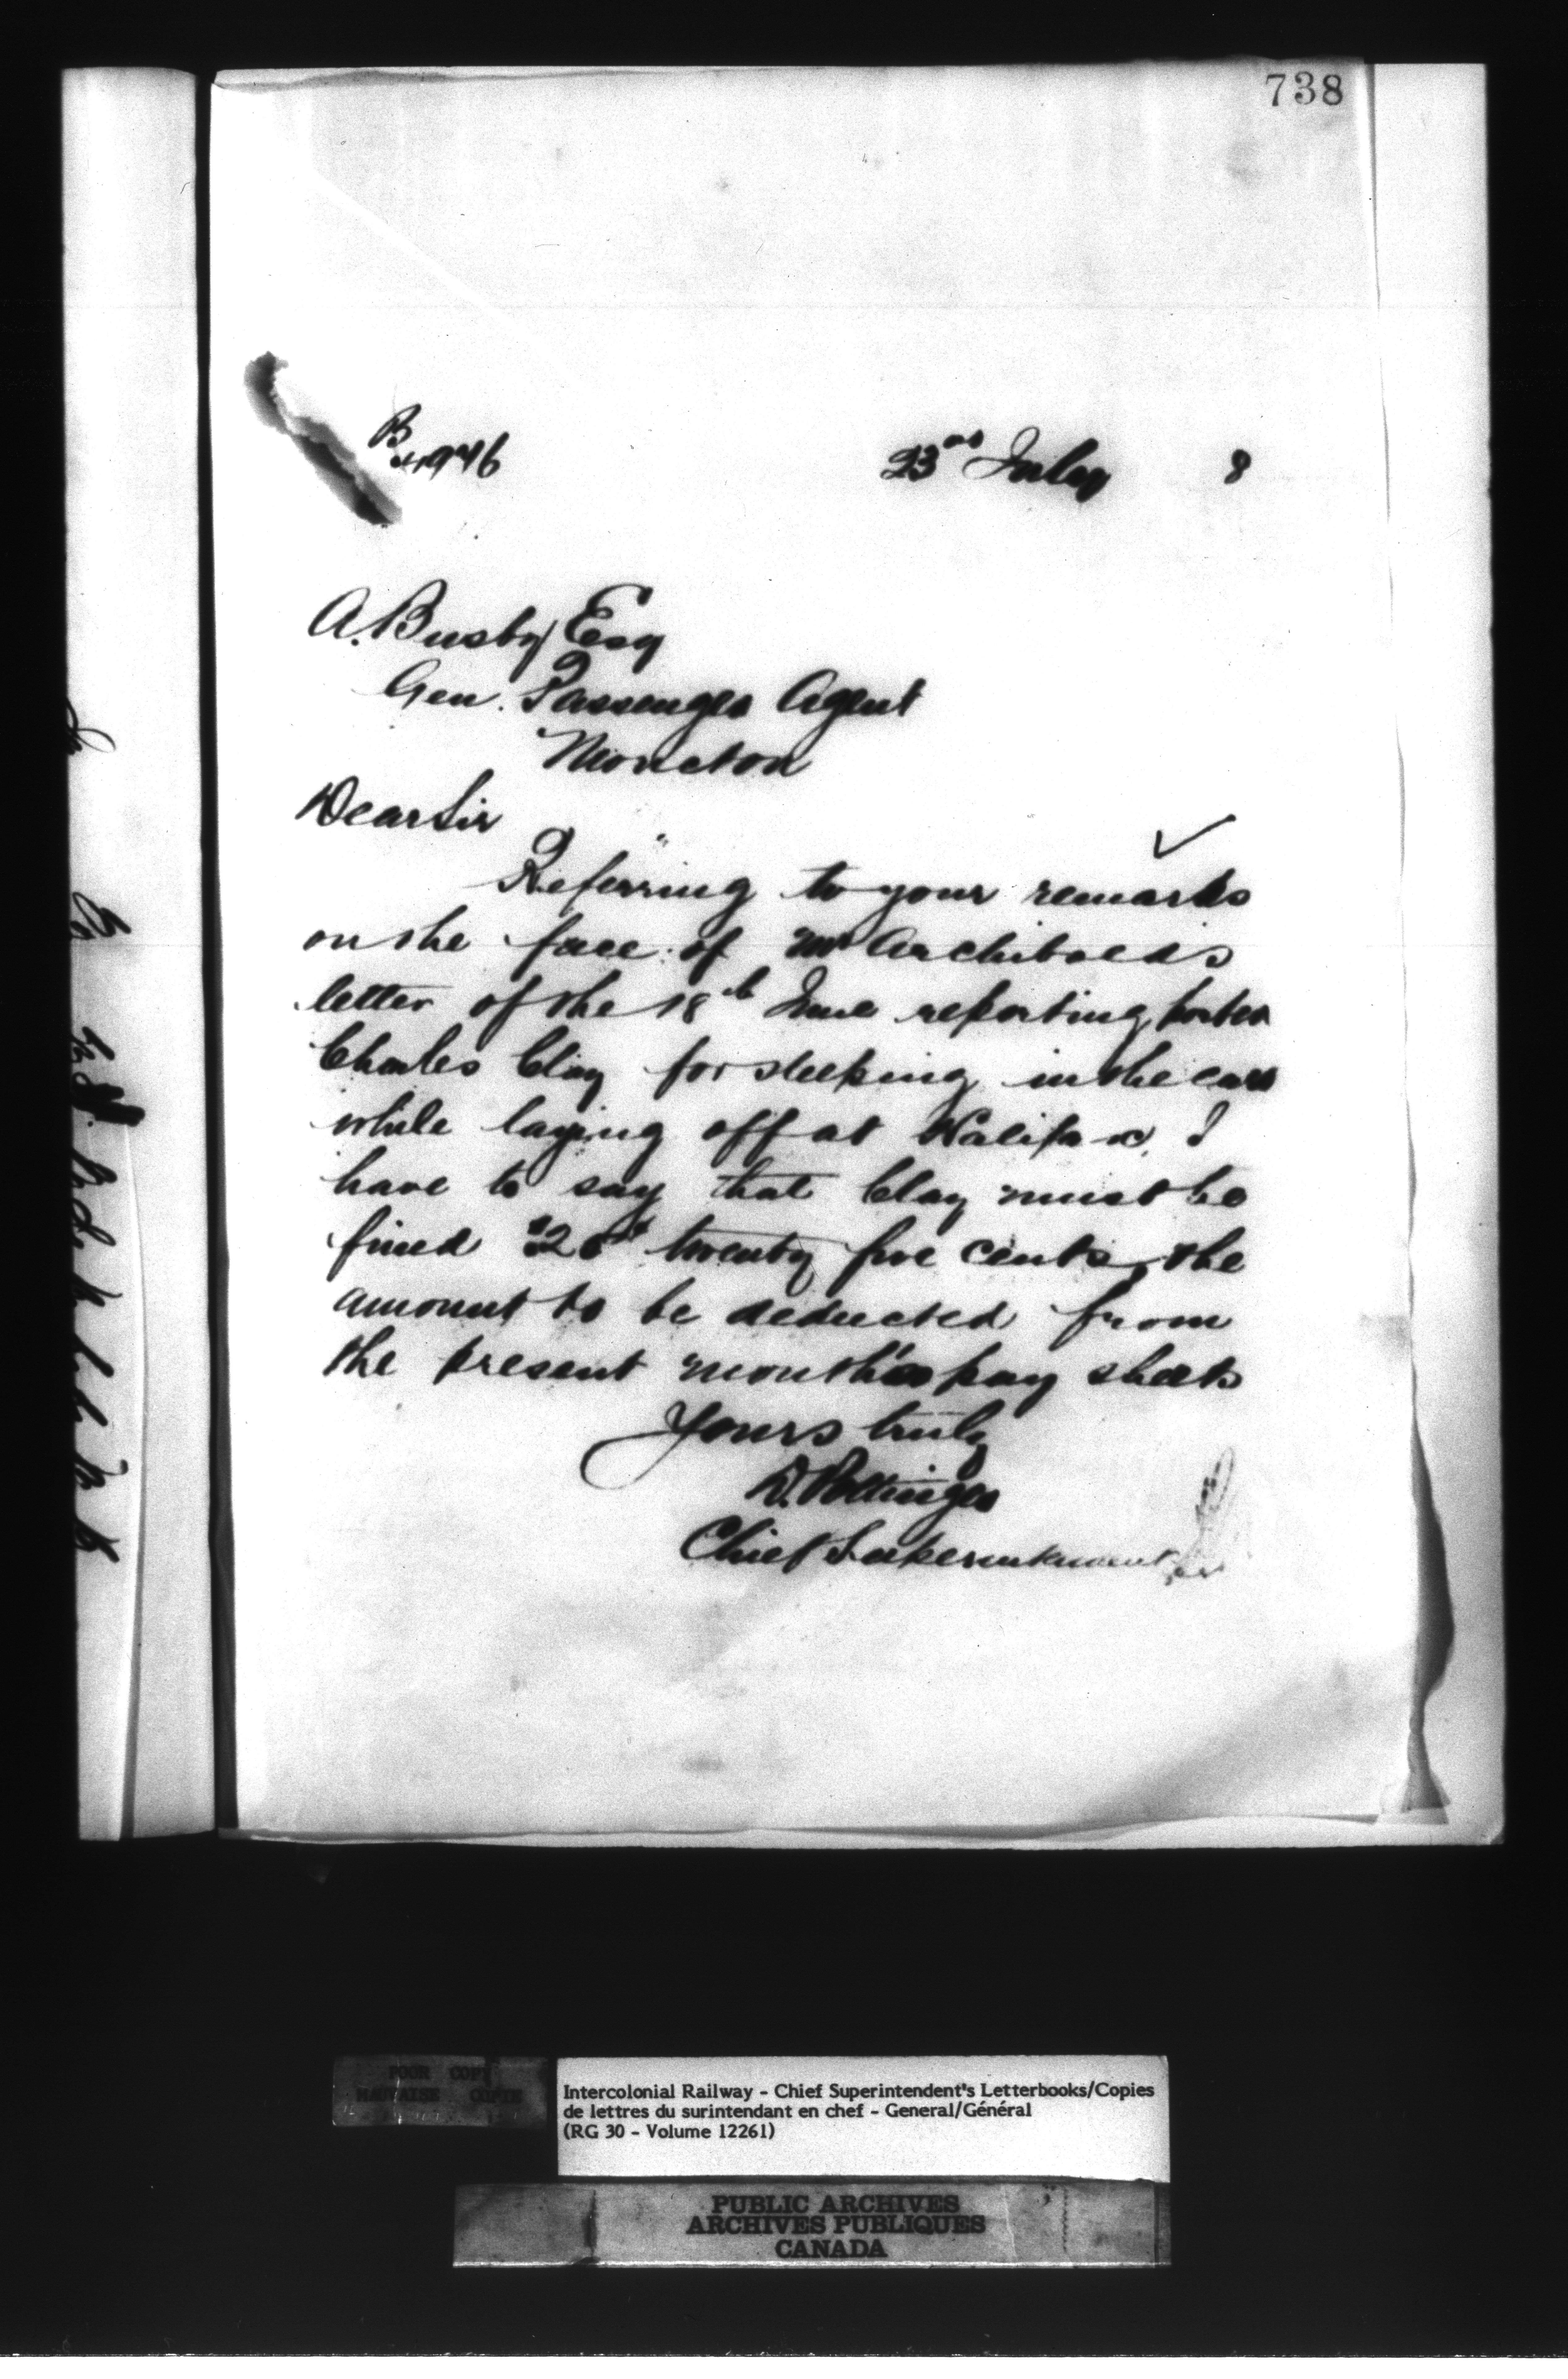 738
B
4946 23rd July 8
A. Busby Esq
Gen. Passenger Agent
Moncton
Dear Sir
Referring to your remarks
on the face of Mr Archibald's
letter of the 18th June reporting porter
Charles Clay for sleeping in the cars
while laying off at Halifax, I
have to say that Clay must be
fined twenty five cents, the
amount to be deducted from
the present month's pay sheets
Yours truly
D. Pottinger
Chief Superintendent
POOR COPY
MAUVAISE COPIE
Intercolonial Railway - Chief Superintendent's Letterbooks/Copies
de lettres du surintendant en chef - General/Général
(RG 30 - Volume 12261)
PUBLIC ARCHIVES
ARCHIVES PUBLIQUES
CANADA